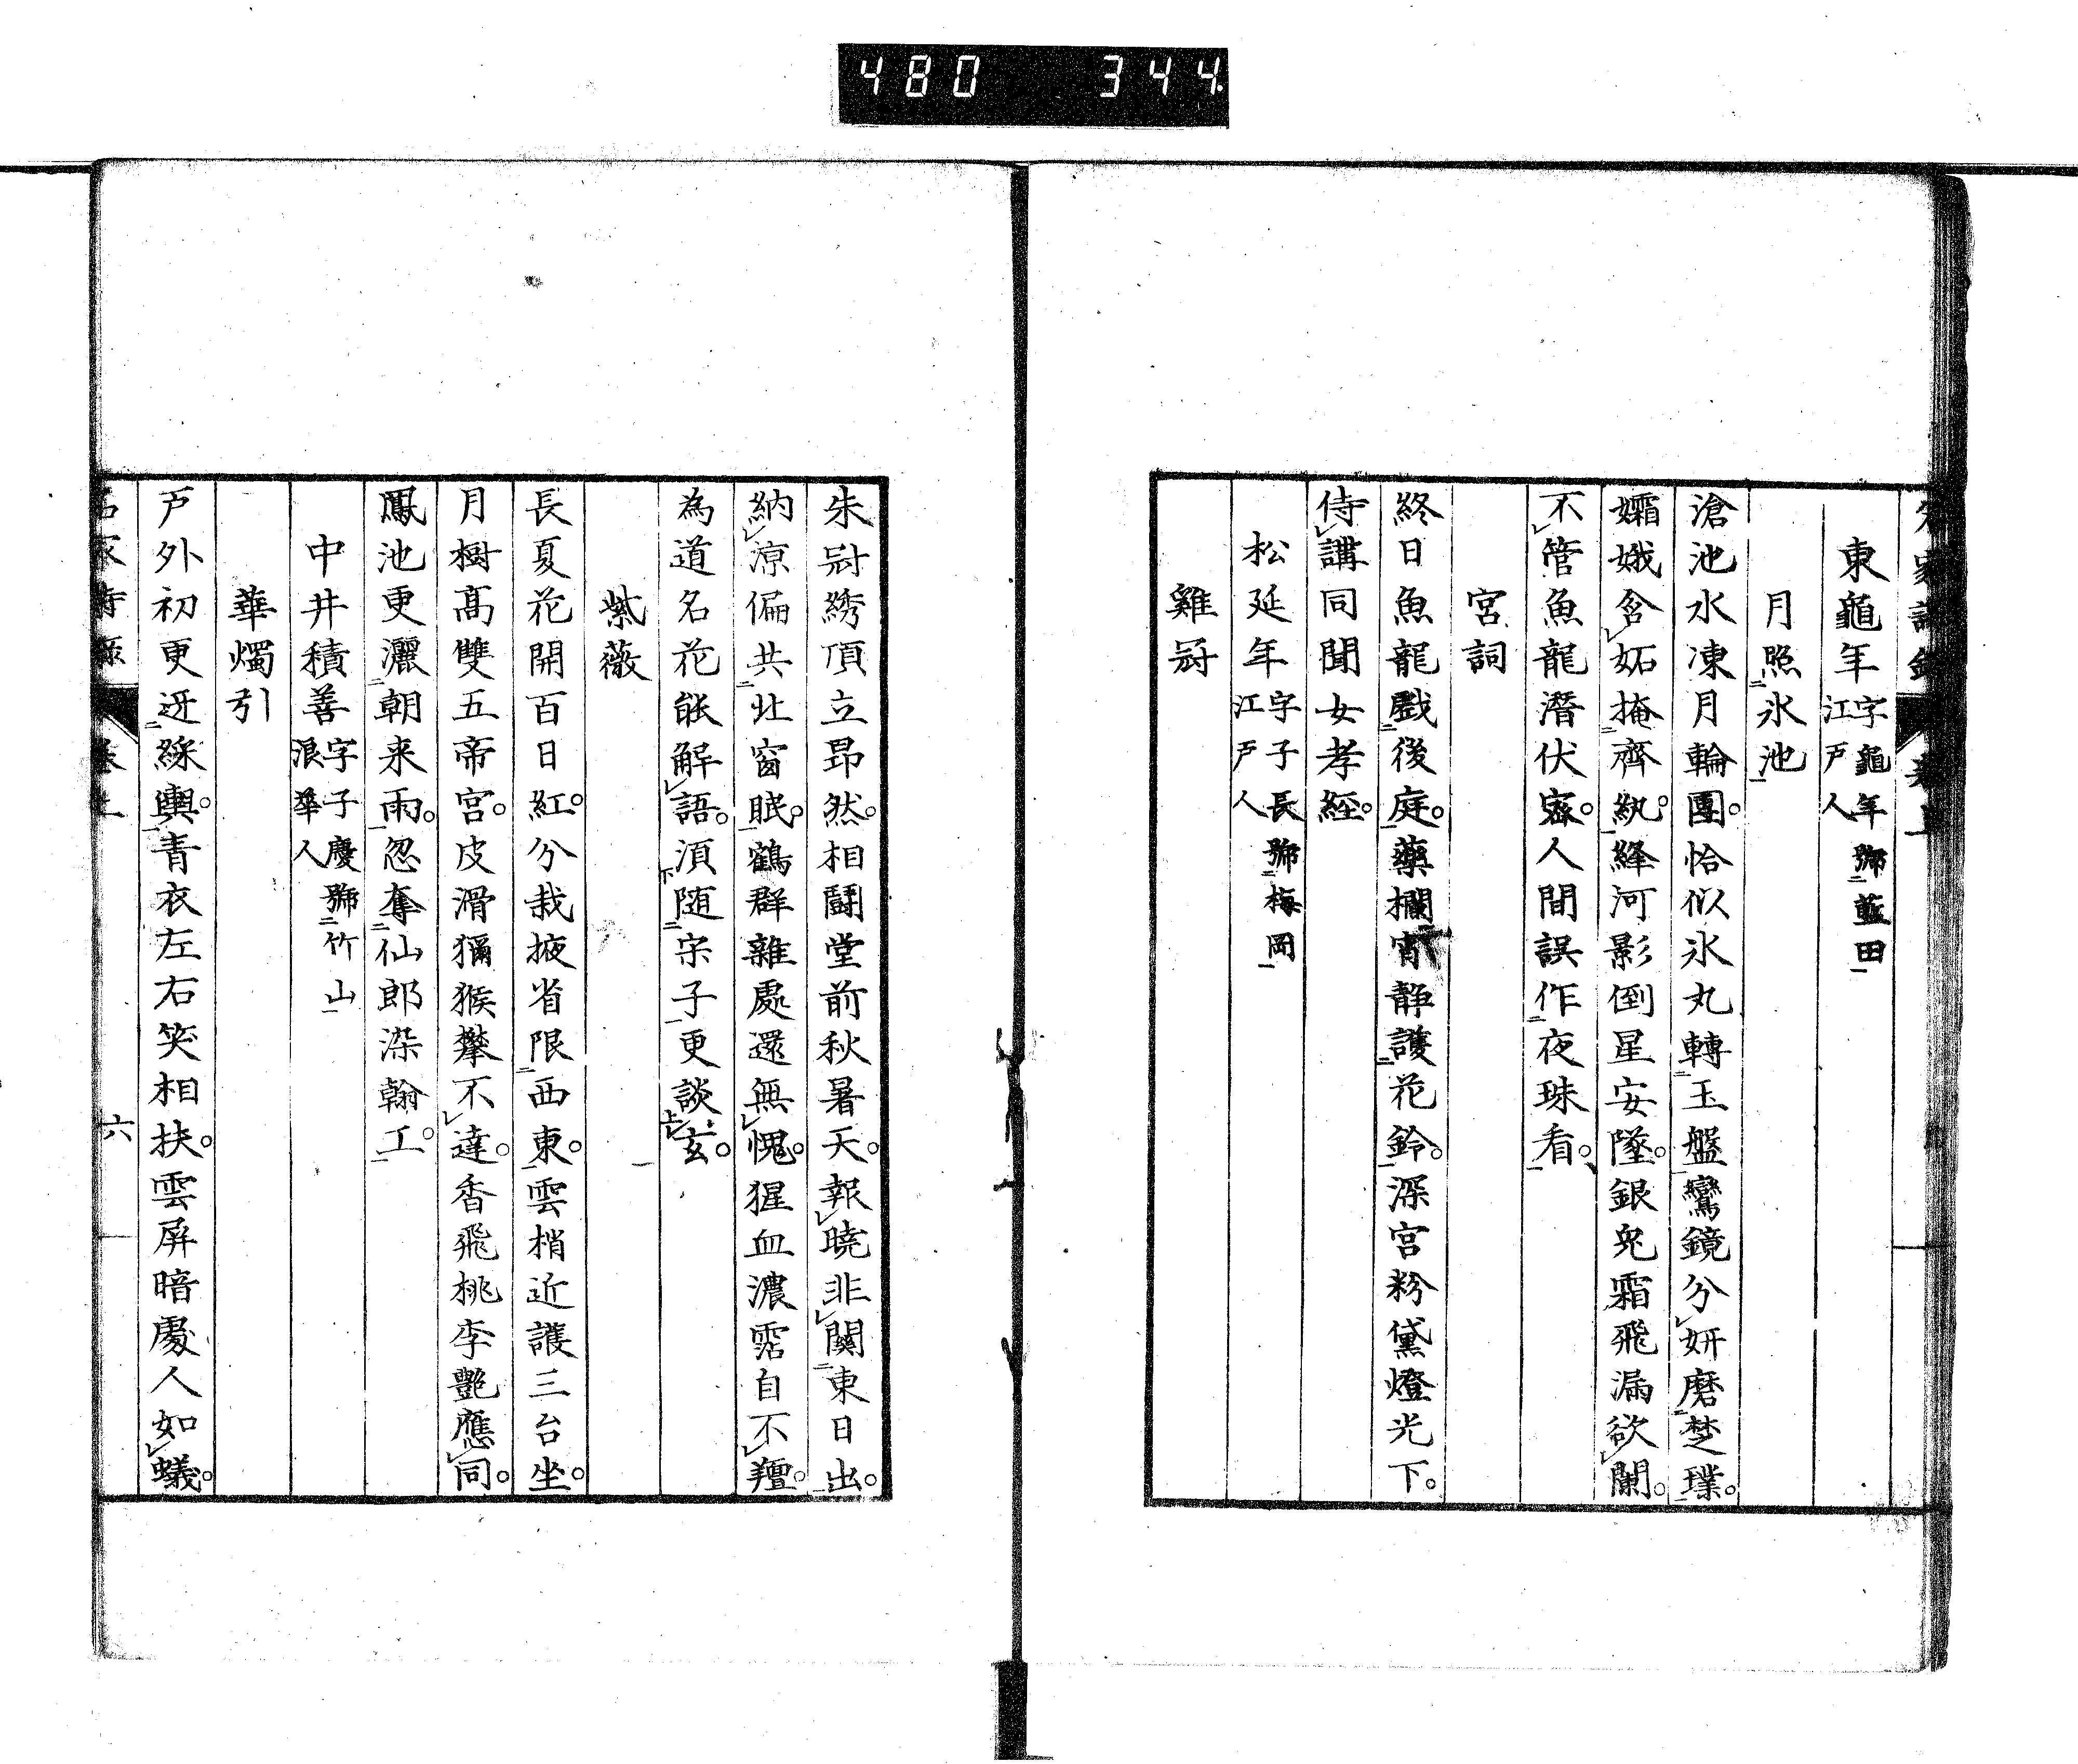 480 344
東龜年 字龜年號藍田江戸人
月照氷池
滄池水凍月輪團。恰似氷丸轉玉盤鸞鏡分妍磨楚璞。
孀娥含妬掩齊紈。絳河影倒星安墜。銀兎霜飛漏欲闌。
不管魚龍潛伏密。人間誤作夜珠看。
宮詞
終日魚龍戲後庭。藥欄宵静護花鈴。深宮粉黛燈光下。
侍講同聞女孝經。
松延年 字子長號梅岡江戸人
雞冠
朱冠綉頂立昂然。相鬪堂前秋暑天。報曉非關東日出。
納凉偏共北窗眠。鶴群雜處還無愧。猩血濃霑自不羶。
為道名花能解語。湏随宗子更談玄。
紫薇
長夏花開百日紅。分栽掖省限西東。雲梢近護三台坐。
月樹高雙五帝宮。皮滑獼猴攀不達。香飛桃李艷應同。
鳳池更灑朝来雨。忽奪仙郎染翰工。
中井積善 字子慶號竹山浪華人
華燭引
戸外初更迓綵輿。青衣左右笑相扶。雲屏暗處人如蟻。
六